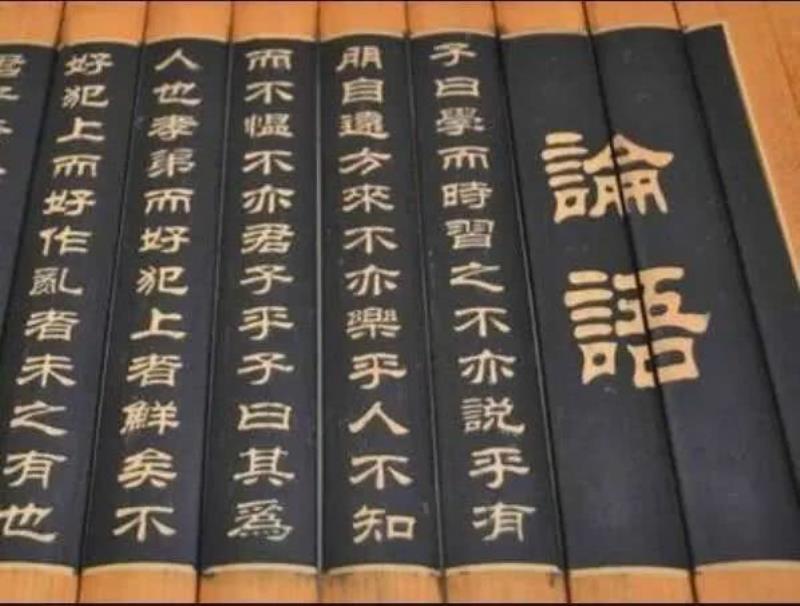 論語
子曰學而時習之不亦說乎有
朋自遠方來不亦樂乎人不知
而不愠不亦君子乎子曰其爲
人也孝弟而好犯上者鮮矣不
好犯上而好作亂者未之有也
君子